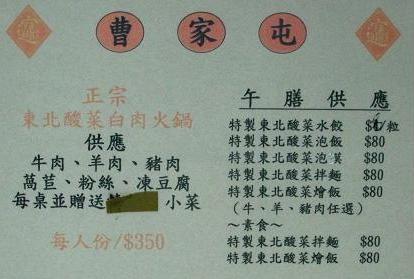 曹家屯
正宗
東北酸菜白肉火鍋
供應
牛肉、羊肉、豬肉
萬苣、粉絲、凍豆腐
每桌並贈送 小菜
每人份/$350
午膳供應
特製東北酸菜水餃 /粒
特製東北酸菜泡飯 $80
特製東北酸菜泡漠 $80
特製東北酸菜拌麵 $80
特製東北酸菜燴飯 $80
(牛、羊、豬肉任選)
～素食～
特製東北酸菜拌麵 $80
特製東北酸菜燴飯 $80